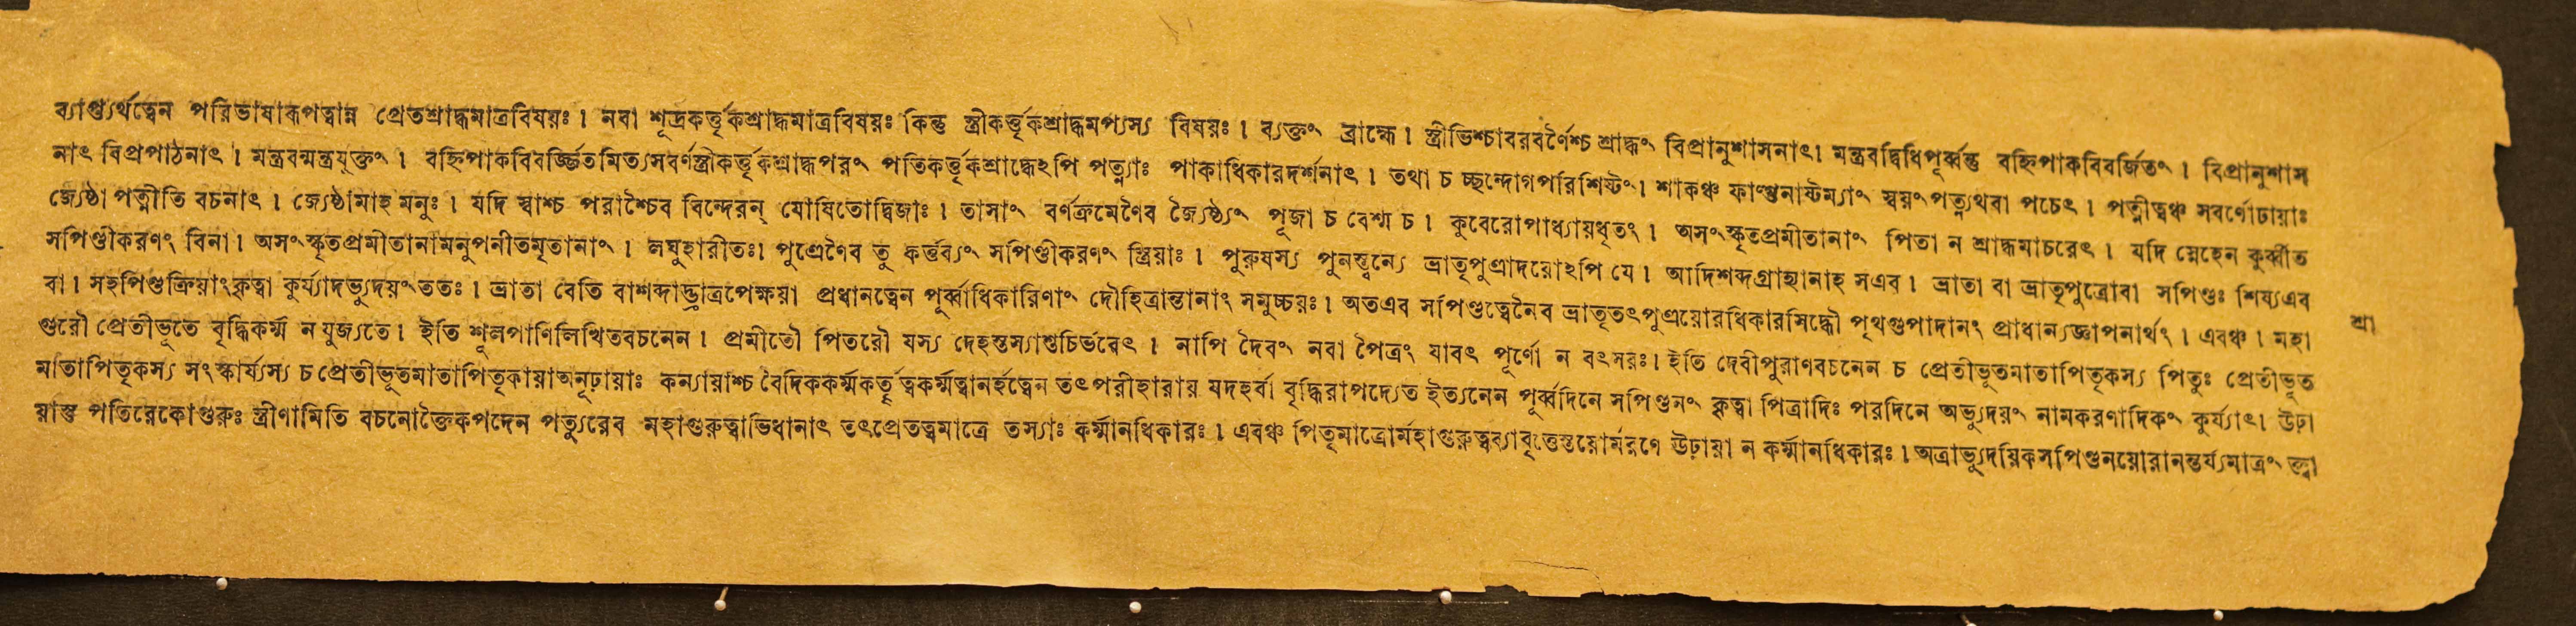 ব্যাপ্ত্যর্থত্বেন পরিভাষারূপত্বান্ন প্রেতশ্রাদ্ধমাত্রবিষয়ঃ। নবা শূদ্রকর্ত্তৃকশ্রাদ্ধমাত্রবিষয়ঃ কিন্তু স্ত্রীকর্ত্তৃকশ্রাদ্ধমপ্যস্য বিষয়ঃ। ব্যক্তং ব্রাহ্মে। স্ত্রীভিশ্চাবরবর্ণৈশ্চ শ্রাদ্ধং বিপ্রানুশাসনাৎ। মন্ত্রবদ্বিধিপূর্ব্বন্তু বহ্নিপাকবিবর্জিতং। বিপ্রানুশাস
নাৎ বিপ্রপাঠনাৎ। মন্ত্রবন্মন্ত্রযুক্তং। বহ্নিপাকবিবর্জ্জিতমিত্যসবর্ণস্ত্রীকর্ত্তৃকশ্রাদ্ধপরং পতিকর্ত্তৃকশ্রাদ্ধেঽপি পত্ন্যাঃ পাকাধিকারদর্শনাৎ। তথা চ চ্ছন্দোগপরিশিষ্টং। শাকঞ্চ ফাল্গুনাষ্টম্যাং স্বয়ং পত্ন্যথবা পচেৎ। পত্নীত্বঞ্চ সবর্ণোঢায়াঃ
জ্যেষ্ঠা পত্নীতি বচনাৎ। জ্যেষ্ঠামাহ মনুঃ। যদি স্বাশ্চ পরাশ্চৈব বিন্দেরন্ যোষিতোদ্বিজাঃ। তাসাং বর্ণক্রমেণৈব জ্যৈষ্ঠ্যং পূজা চ বেশ্ম চ। কুবেরোপাধ্যায়ধৃতং। অসংস্কৃতপ্রমীতানাং পিতা ন শ্রাদ্ধমাচরেৎ। যদি স্নেহেন কুর্ব্বীত
সপিণ্ডীকরণং বিনা। অসংস্কৃতপ্রমীতানামনুপনীতমৃতানাং। লঘুহারীতঃ। পুত্রেণৈব তু কর্ত্তব্যং সপিণ্ডীকরণং স্ত্রিয়াঃ। পুরুষস্য পুনস্ত্বন্যে ভ্রাতৃপুত্রাদয়োঽপি যে। আদিশব্দগ্রাহ্যানাহ সএব। ভ্রাতা বা ভ্রাতৃপুত্রোবা সপিণ্ডঃ শিষ্যএব
বা। সহপিণ্ডক্রিয়াংকৃত্বা কুর্য্যাদভ্যুদয়ংততঃ। ভ্রাতা বেতি বাশব্দাদ্ভ্রাত্রপেক্ষয়া প্রধানত্বেন পূর্ব্বাধিকারিণাং দৌহিত্রান্তানাং সমুচ্চয়ঃ। অতএব সপিণ্ডত্বেনৈব ভ্রাতৃতৎপুত্রয়োরধিকারসিদ্ধৌ পৃথগুপাদানং প্রাধান্যজ্ঞাপনার্থং। এবঞ্চ। মহা
গুরৌ প্রেতীভূতে বৃদ্ধিকর্ম্ম ন যুজ্যতে। ইতি শূলপাণিলিখিতবচনেন। প্রমীতৌ পিতরৌ যস্য দেহস্তস্যাশুচির্ভবেৎ। নাপি দৈবং নবা পৈত্রং যাবৎ পূর্ণো ন বৎসরঃ। ইতি দেবীপুরাণবচনেন চ প্রেতীভূতমাতাপিতৃকস্য পিতুঃ প্রেতীভূত
শ্রা
মাতাপিতৃকস্য সংস্কার্য্যস্য চ প্রেতীভূতমাতাপিতৃকায়াঅনূঢ়ায়াঃ কন্যায়াশ্চ বৈদিককর্ম্মকর্তৃত্বকর্ম্মত্বানর্হত্বেন তৎপরীহারায় যদহর্বা বৃদ্ধিরাপদ্যেত ইত্যনেন পূর্ব্বদিনে সপিণ্ডনং কৃত্বা পিত্রাদিঃ পরদিনে অভ্যুদয়ং নামকরণাদিকং কুর্য্যাৎ। ঊঢ়া
য়াস্তু পতিরেকোগুরুঃ স্ত্রীণামিতি বচনোক্তৈকপদেন পত্যুরেব মহাগুরুত্বাভিধানাৎ তৎপ্রেতত্বমাত্রে তস্যাঃ কর্ম্মানধিকারঃ। এবঞ্চ পিতৃমাত্রোর্মহাগুরুত্বব্যাবৃত্তেস্তয়োর্মরণে ঊঢ়ায়া ন কর্ম্মানধিকারঃ। অত্রাভ্যুদয়িকসপিণ্ডনয়োরানন্তর্য্যমাত্রং ক্ত্বা